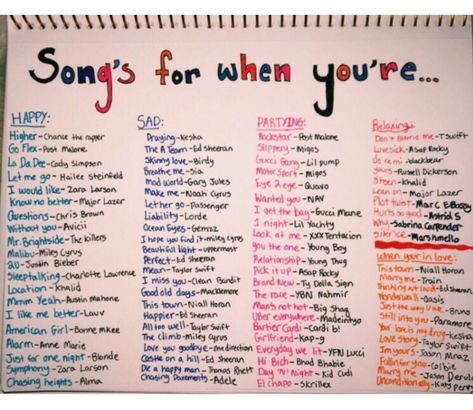 Song's for when you're...
HAPPY:
Higher-Chance the rapper
Go Flex-Post Malone
La Da Dee-Cody Simpson
Let me go-Hailee Steinfeld
I would like-Zara Larson
Know no better-Major Lazer
Questions-Chris Brown
Without you-Avicii
Mr. Brightside-The killers
Malibu-Miley Cyrus
2U-Justin Bieber
Sleeptalking-Charlotte Lawrence
Location-Khalid
Mmm Yeah-Austin Mahone
I like me better-Lauv
American Girl-Bonne McKee
Alarm-Anne Marie
Just for one night-Blonde
Symphony-Zara Larson
Chasing heights-Alma
SAD:
Praying-Kesha
The A Team-Ed Sheeran
Skinny love-Birdy
Breathe me-Sia
Mad World-Gary Jules
Make me-Noah Cyrus
Let her go-Passenger
Liability-Lorde
Ocean Eyes-
I hope you find it-Miley Cyrus
Beautiful light-uppermost
Perfect-Ed Sheeran
Mean-Taylor Swift
I miss you-Clean Bandit
Good old days-Macklemore
This town-Niall Horan
Happier-Ed Sheeran
All too well-Taylor Swift
The climb-Miley cyrus
When you love someone-
Dive-Ed Sheeran
Castle on a hill-Ed Sheeran
Die a happy man-Thomas Rhett
Chasing Pavements-Adele
PARTYING:
Rockstar-Post Malone
Slippery-Migos
Gucci Gang-Lil pump
Motor Sport-Migos
Eye 2 eye-Quavo
Wanted you-NAV
I get the bag-Gucci Mane
I night-Lil Yachty
Look at me-XXXTentacion
you the one-Young Boy
Relationship-Young Thug
Pick it up-Asap Rocky
Brand New-Ty Dolla $ign
The race-YBN Nahmir
Man's not hot-Big Shaq
Uber everywhere-Madeintyo
Bartier Cardi-Cardi b
Girlfriend-Kap-g
Everyday we lit-YFN Lucci
Hi Bich-Bhad Bhabie
Day 'N' Night-Kid Cudi
El chapo-Skrillex
Relaxing:
Don't Blame me-T.Swift
Lovesick-Asap Rocky
do re mi-blackbear
Russell Dickerson
-Khalid
Lean on-Major Lazer
Plot twist-Marc E Bassy
Hurts so good-Astrid S
Why-Sabrina Carpenter
Silence-Marshmello
When your in love:
This town-Niall Horan
Marry me-Train
Thinking out loud-Ed Sheeran
Wonderwall-Oasis
Just the way U are-Bruno
Still into you-Paramore
Your love is my drug-Kesha
Love story-Taylor Swift
Im yours-Jason Mraz
Fallin for you-Colbie
Marry me-Jason Derulo
Unconditionally-Katy perry